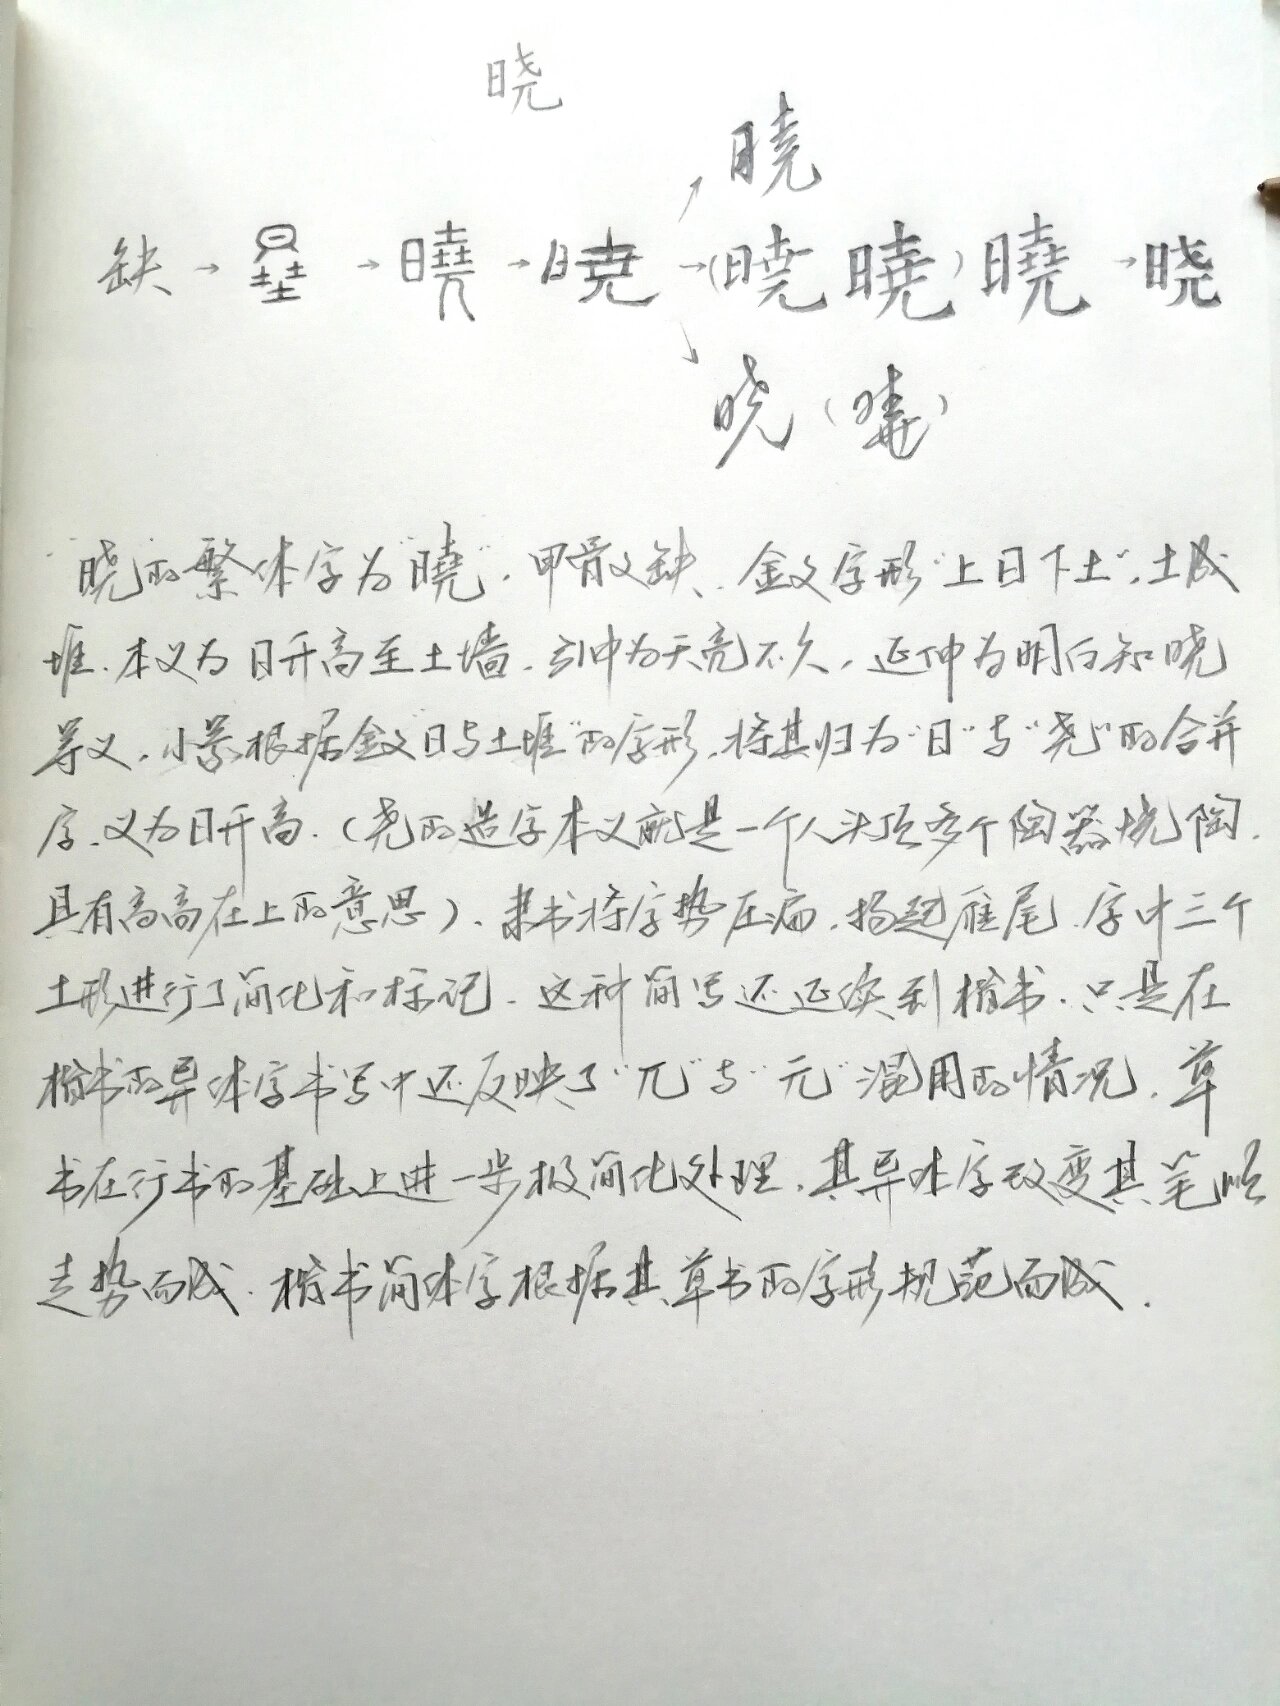 晓
晓
缺→ →曉→曉→(暁 曉)曉→晓
晓( )
晓的繁体字为"曉",甲骨文缺、金文字形"上日下土",土成
堆、本义为日升高至土墙、引申为天亮不久,延伸为明白知晓
等义,小篆根据金文"日与土堆"的字形,将其归为"日"与"尧"的合并
字、义为日升高、(尧的造字本义就是一个人头顶多个陶器烧陶、
具有高高在上的意思)、隶书将字势压扁,扬起雁尾、字中三个
土形进行了简化和标记、这种简写还延续到楷书、只是在
楷书的异体字书写中还反映了"兀"与"元"混用的情况,草
书在行书的基础上进一步极简化处理,其异体字改变其笔顺
走势而成、楷书简体字根据其草书的字形规范而成.